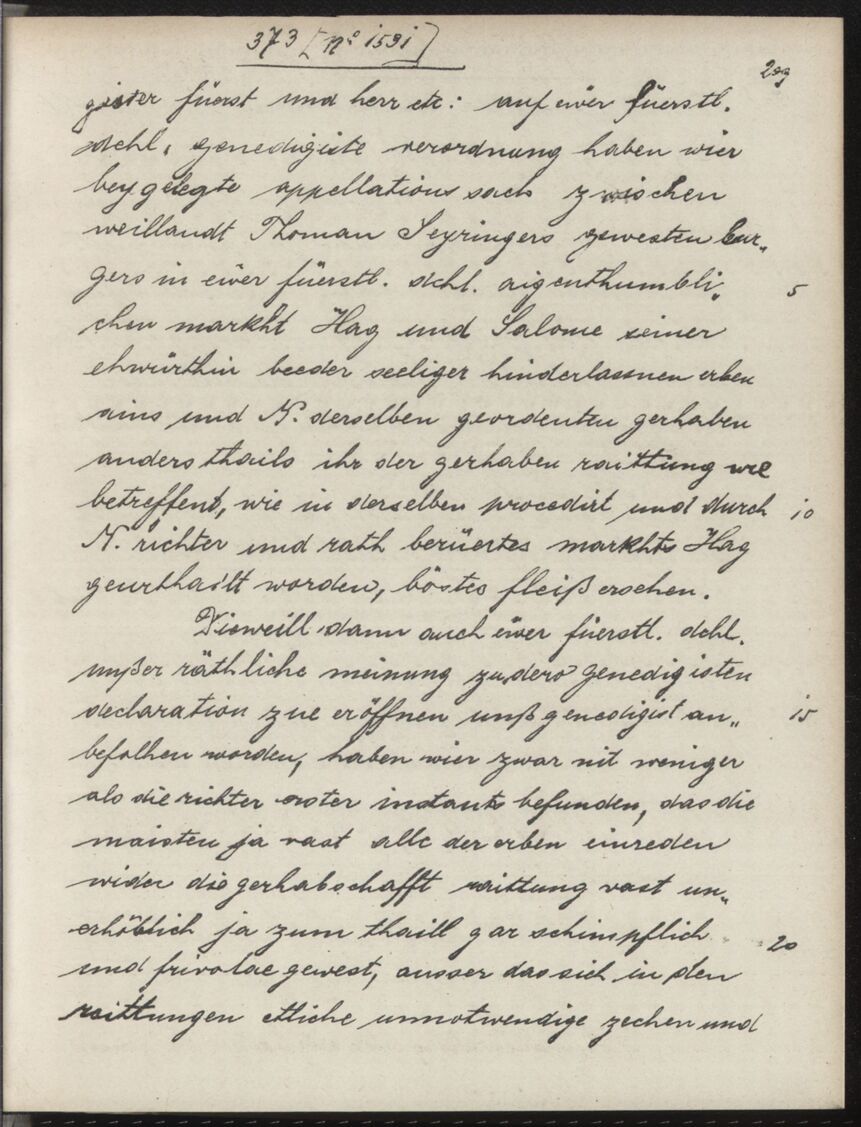 373 [Nº 1531]
209
gister füerst und herr etc: auf ewer füerstl.
dchl. genedigiste verordnung haben wier
beygelegte appellations sach zwischen
weillandt Thoman Seyringers gewesten bur„
gers in ewer füerstl. dchl. aigenthumbli„ 5
chen markht Hag und Salome seiner
ehwürthin beeder seeliger hinderlassnen erben
ains und N. derselben geordenten gerhaben
anders thails ihr der gerhaben raittung
betreffent, wie in derselben procedirt und durch 10
N. richter und rath berüertes markhts Hag
geurthailt worden, böstes fleiß ersehen.
Dieweill dann auch ewer füerstl. dchl.
unßer räthliche meinung zu dero genedigisten
declaration zue eröffnen unß genedigist an„ 15
befolhen worden, haben wier zwar nit weniger
als die richter erster instantz befunden, das die
maisten ja vast alle der erben einreden
wider die gerhabschafft raittung vast un„
erhöblich ja zum thaill gar schimpflich 20
und frivolae gewest, ausser das sich in den
raittungen etliche unnotwendige zechen und